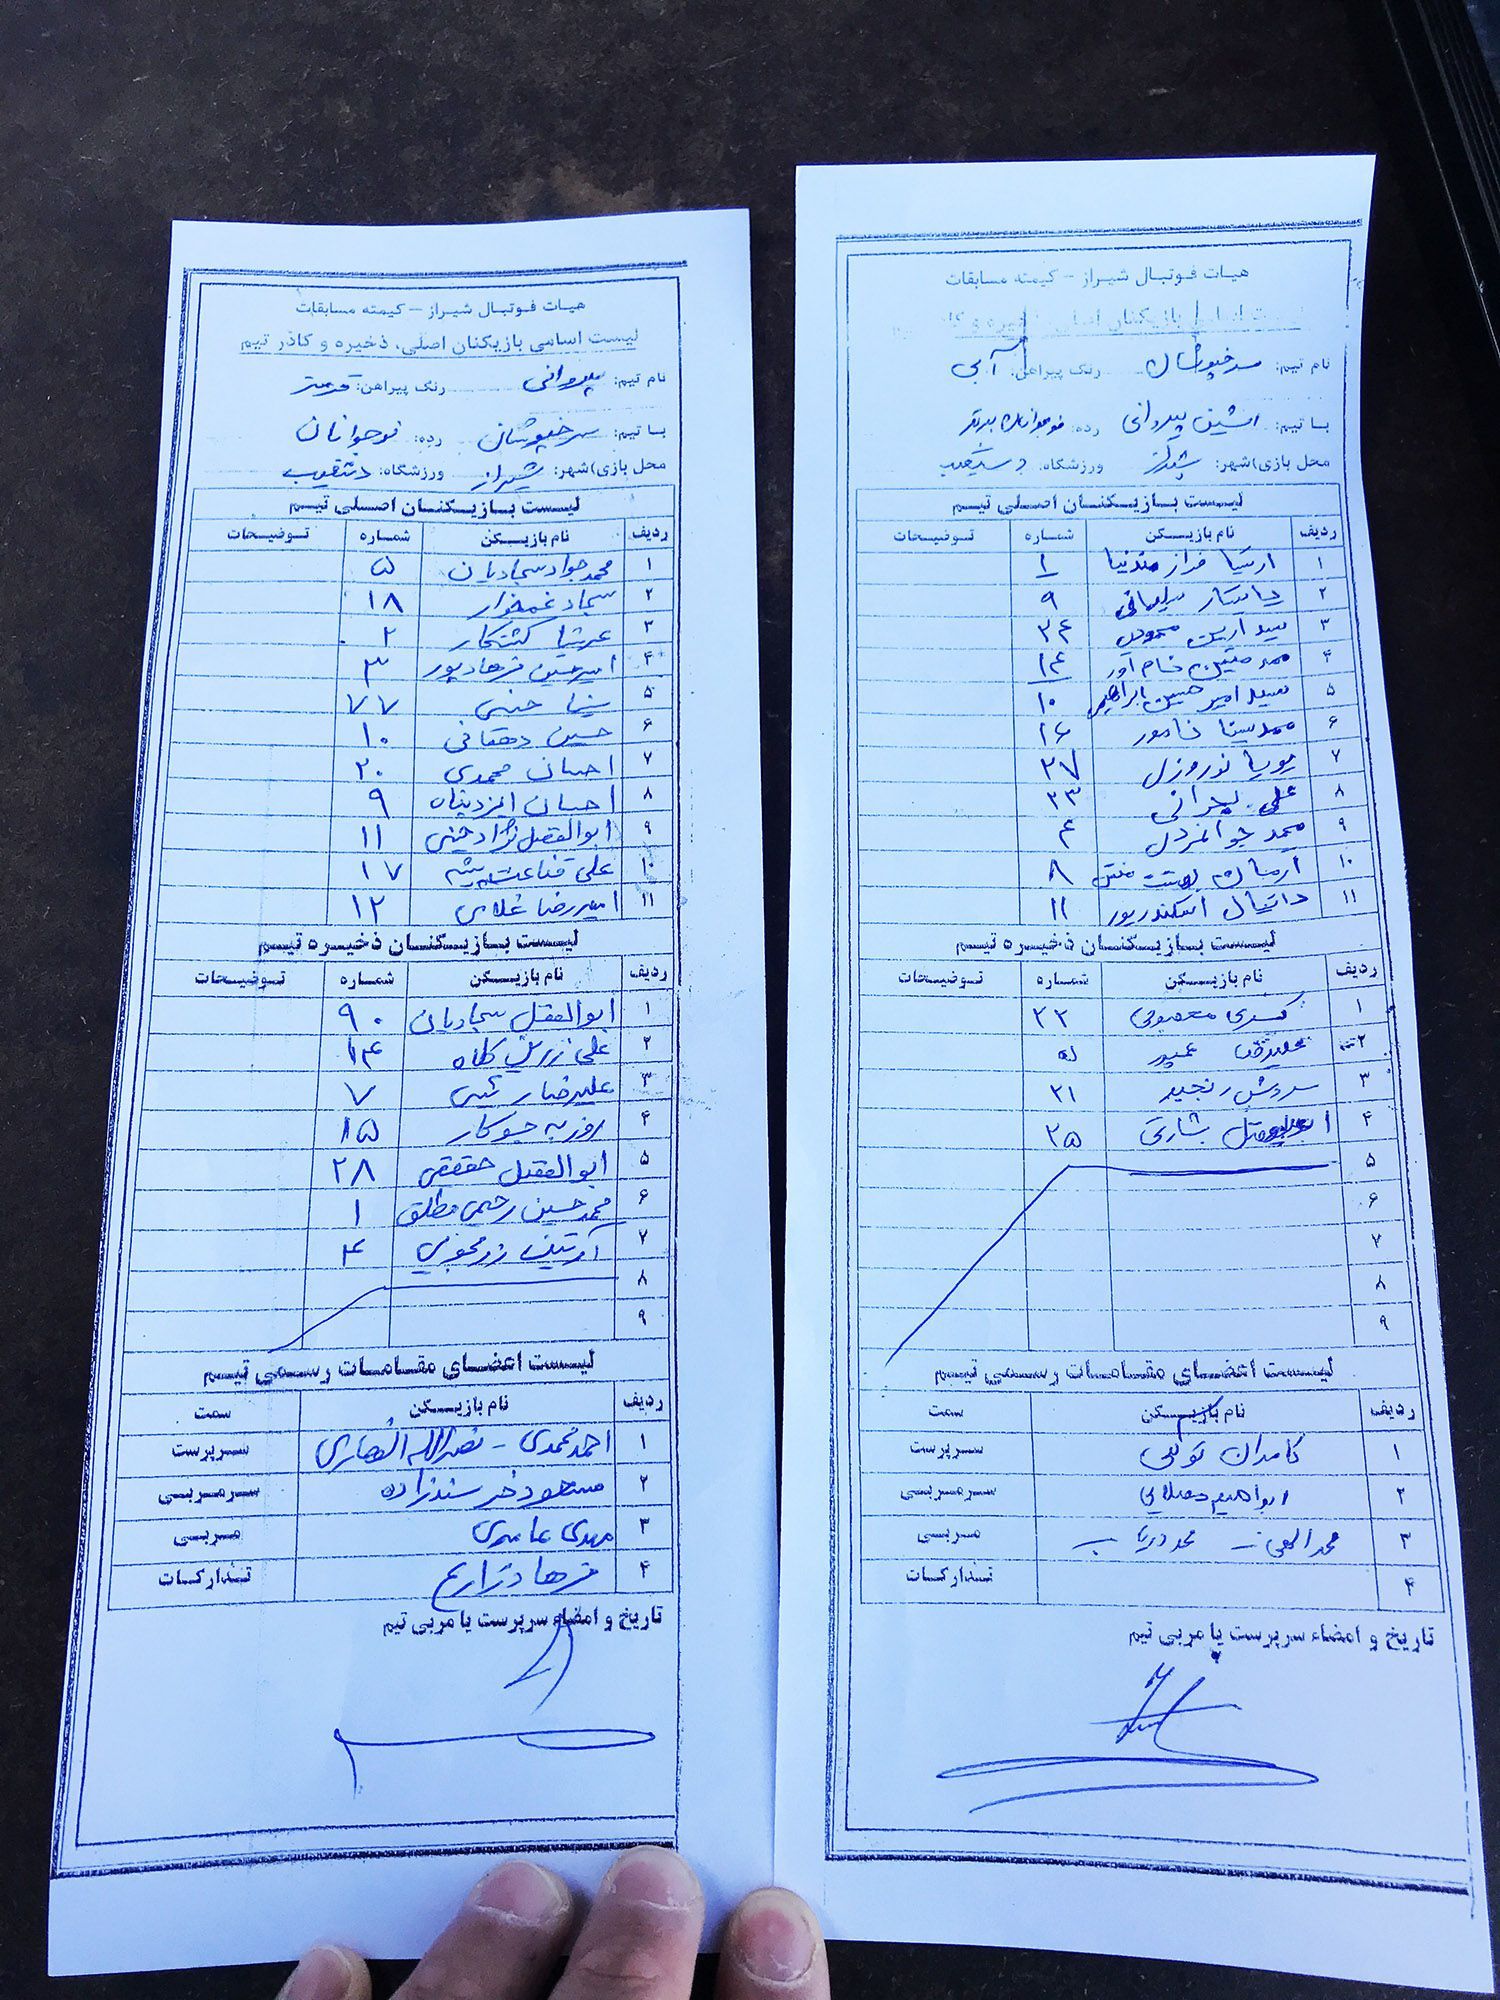 هیات فوتبال شیراز - کیمته مسابقات
لیست اسامی بازیکنان اصلی، ذخیره و کادر تیم
نام تیم: سرخپوشان رنگ پیراهن: آبی
با تیم: افشین پیروانی رده: نوجوانان برتر
محل بازی)شهر: شیراز ورزشگاه: دستغیب
لیست بازیکنان اصلی تیم
ردیف نام بازیکن شماره توضیحات
۱ ارشیا فراز ۱
۲ ۹
۳ سید ۳۴
۴ محمد متین نام آور ۱۴
۵ سید امیر حسین ابراهیم ۱۰
۶ محمد سینا نامور ۱۶
۷ پویا نوروزی ۲۷
۸ علی بحرانی ۳۳
۹ محمد جوانمردی ۴
۱۰ آرمان بهشت منش ۸
۱۱ دانیال اسکندرپور ۱۱
لیست بازیکنان ذخیره تیم
ردیف نام بازیکن شماره توضیحات
۱ کسری معصومی ۲۲
۲ ۵
۳ سروش رنجبر ۲۱
۴ ابوالفضل بشارتی ۲۵
۵
۶
۷
۸
۹
لیست اعضای مقامات رسمی تیم
ردیف نام بازیکن سمت
۱ کامران توللی سرپرست
۲ ابراهیم سرمربی
۳ محمد مربی
۴ تدارکات
تاریخ و امضاء سرپرست یا مربی تیم
هیات فوتبال شیراز - کیمته مسابقات
لیست اسامی بازیکنان اصلی، ذخیره و کادر تیم
نام تیم: پیروانی رنگ پیراهن: قرمز
با تیم: سرخپوشان رده: نوجوانان
محل بازی)شهر: شیراز ورزشگاه: دستغیب
لیست بازیکنان اصلی تیم
ردیف نام بازیکن شماره توضیحات
۱ محمد جواد سجادیان ۵
۲ سجاد غمخوار ۱۸
۳ عرشیا کشتکار ۲
۴ امیرحسین فرهادپور ۳
۵ سینا ۷۷
۶ حسین دهقانی ۱۰
۷ احسان محمدی ۲۰
۸ احسان ایزدپناه ۹
۹ ابوالفضل نژادحسینی ۱۱
۱۰ علی قناعت پیشه ۱۷
۱۱ امیررضا غلامی ۱۲
لیست بازیکنان ذخیره تیم
ردیف نام بازیکن شماره توضیحات
۱ ابوالفضل سجادیان ۹۰
۲ علی زرین کلاه ۱۴
۳ علیرضا ۷
۴ روزبه جوکار ۱۵
۵ ابوالفضل حقیقی ۲۸
۶ محمد حسین رحیمی مطلق ۱
۷ آرتین ۴
۸
۹
لیست اعضای مقامات رسمی تیم
ردیف نام بازیکن سمت
۱ احمد محمدی - نصرالله انصاری سرپرست
۲ مسعود خرسندزاده سرمربی
۳ مهدی عامری مربی
۴ فرهاد زارع تدارکات
تاریخ و امضاء سرپرست یا مربی تیم